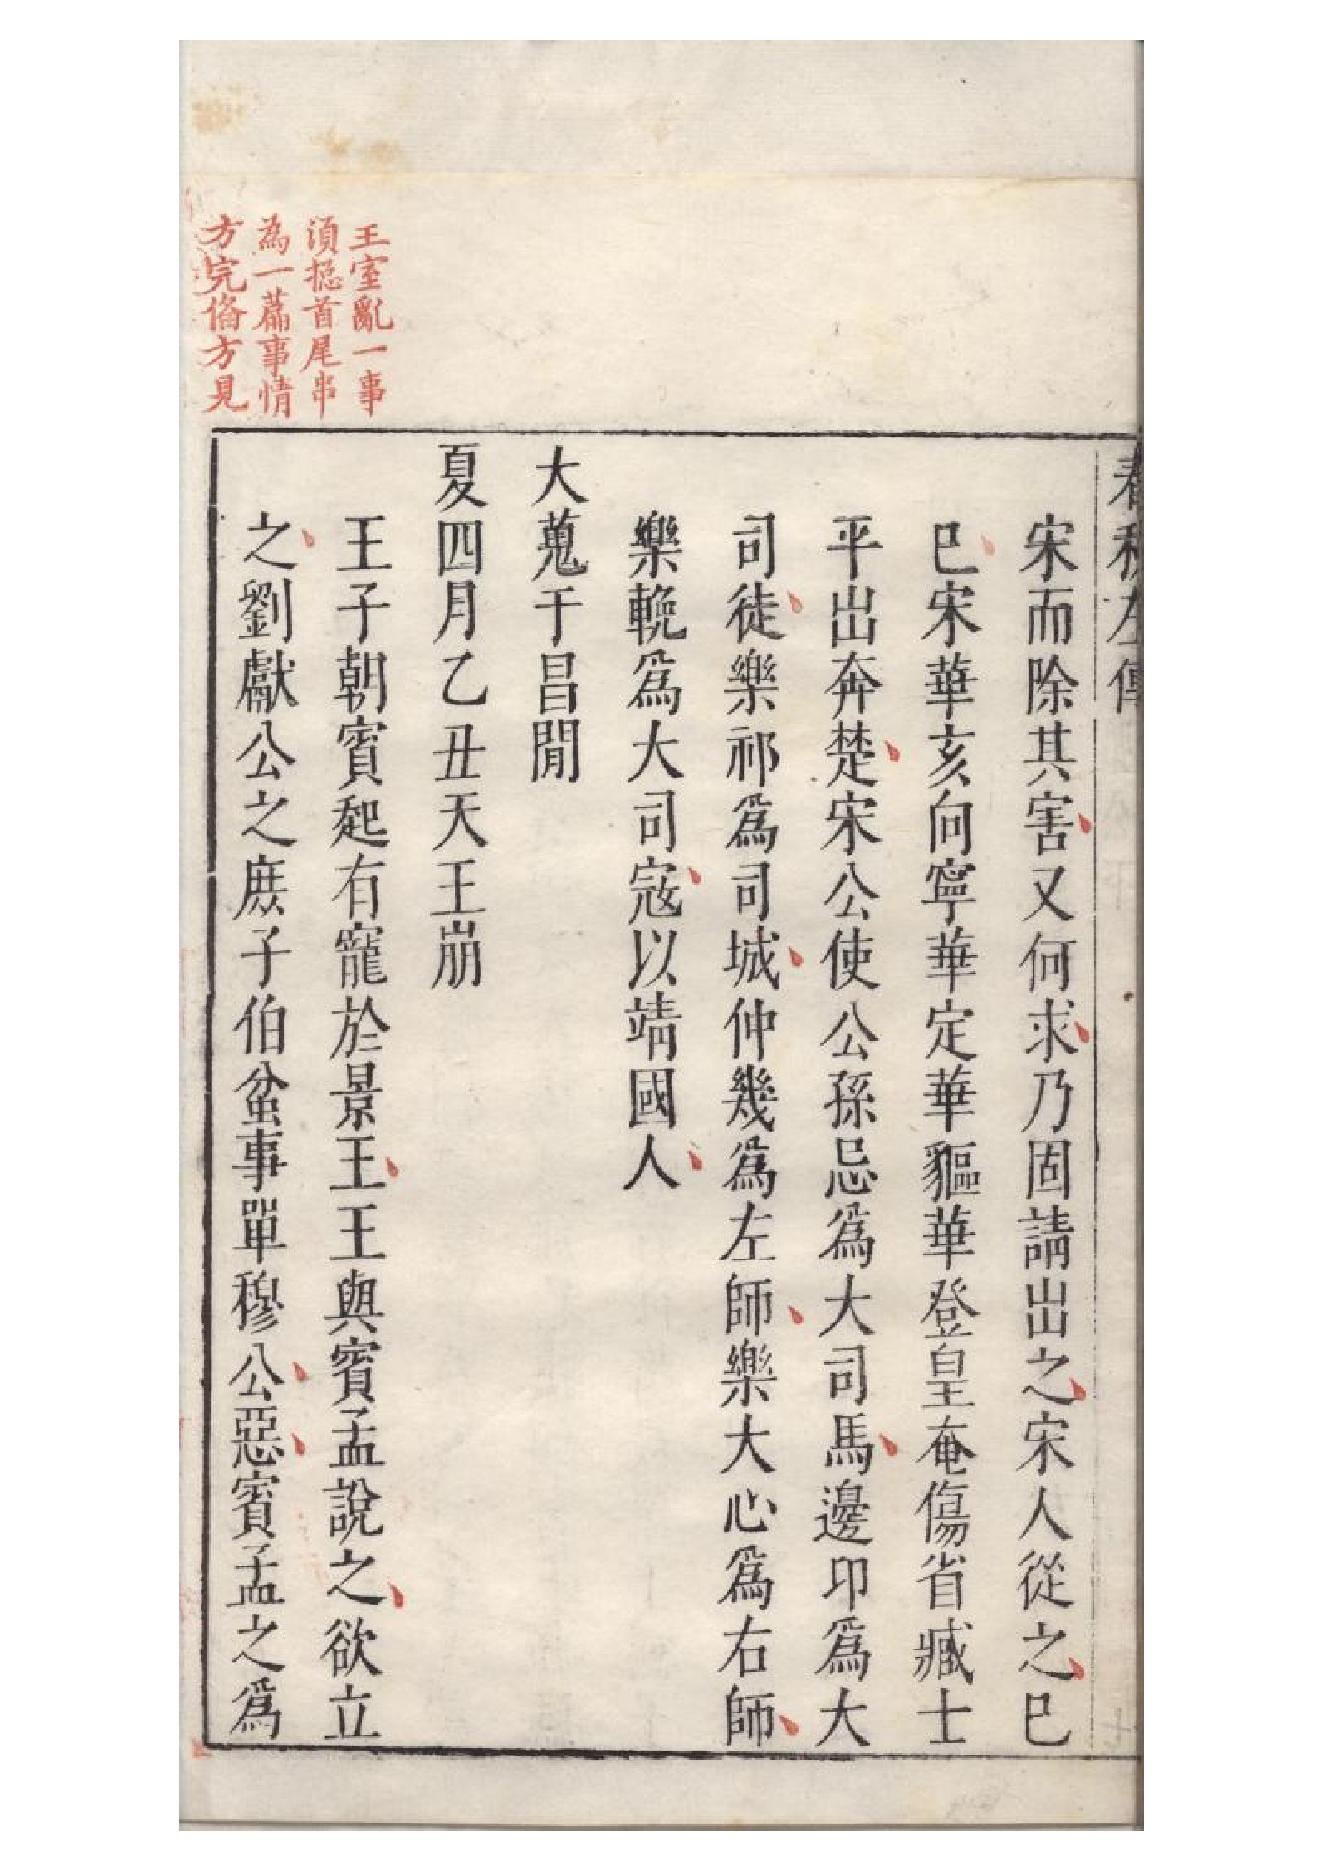 春秋左傳
宋而除其害又何求乃固請出之宋人從之巳
巳宋華亥向寧華定華貙華登皇奄傷省臧士
平出奔楚宋公使公孫忌爲大司馬邊卬爲大
司徒樂祁爲司城仲幾爲左師樂大心爲右師
樂輓爲大司寇以靖國人
大蒐于昌閒
夏四月乙丑天王崩
王子朝賓起有寵於景王王與賓孟說之欲立
之劉獻公之庶子伯蚠事單穆公惡賓孟之爲
王室亂一事
須揔首尾串
為一篇事情
方完俻方見